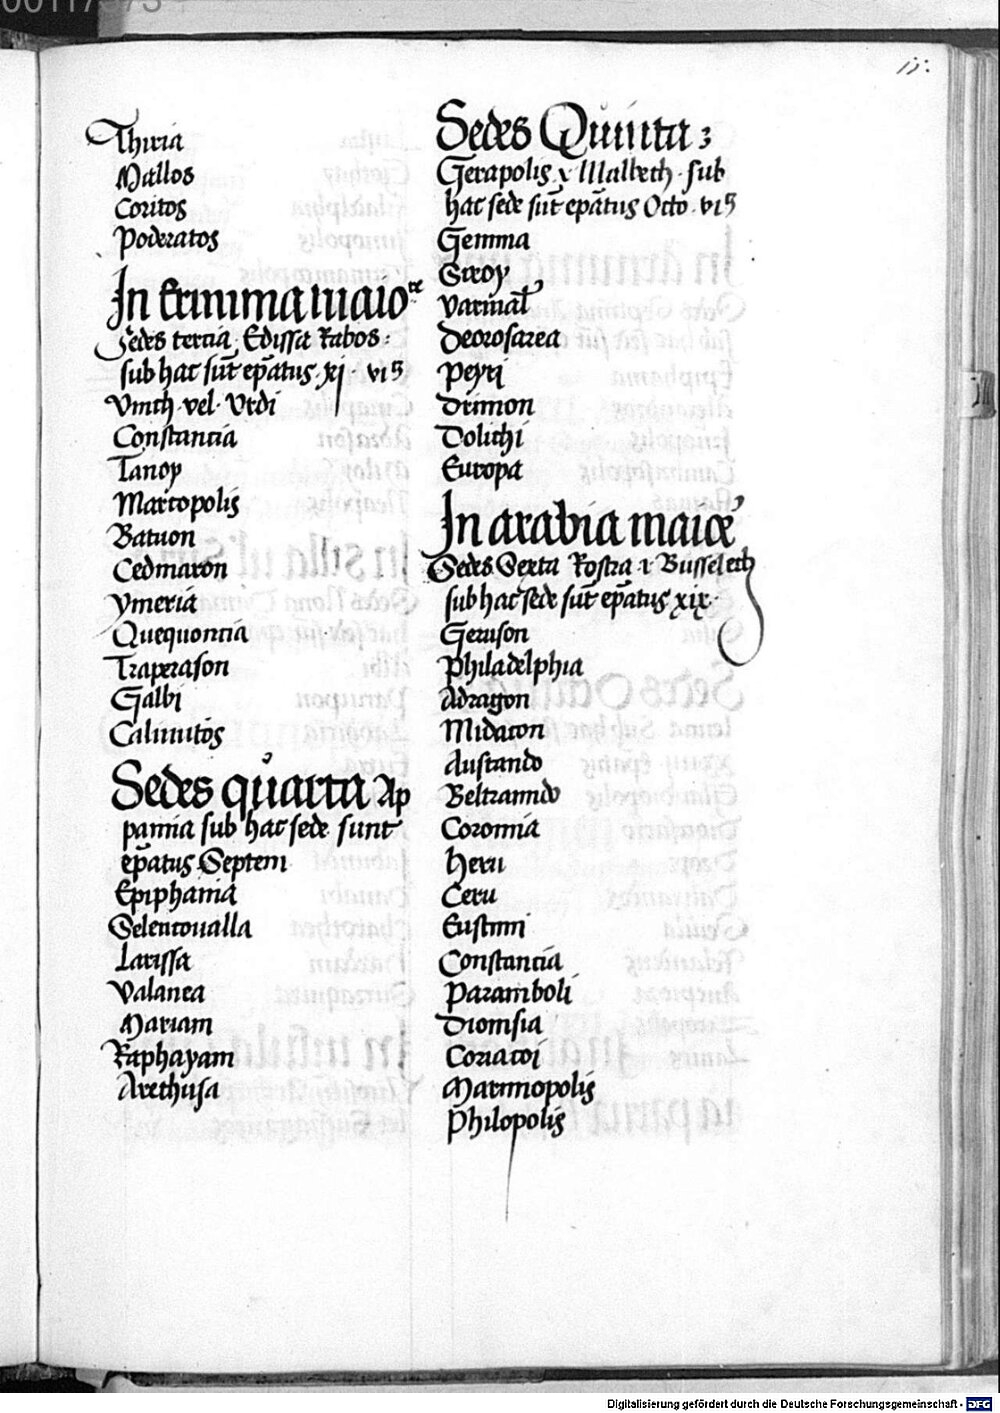 Thiria
Mallos
Coritos
Poderatos
In Erminia maiore
Sedes tercia Edissa Rabos :
sub hac sūt ep̄atus xj · vis
Vmth · vel · Vrdi
Constancia
Tanoy
Martopolis
Batuon
Cedmaron
Ymeria
Quequoncia
Traperason
Galbi
Calinitos
Sedes quarta Ap
pamia sub hac sede sunt
ep̄atus Septem
Epiphania
Selentoualla
Larissa
Valanea
Mariam
Raphayam
Arethusa
Sedes Quinta ;
Gerapolis ⁊ Malbech · sub
hac sede sūt ep̄atus Octo · vis
Gemma
Deorosarea
Peyri
Orimon
Dolichi
Europa
In arabia maiore
Sedes Sexta Rostra ⁊ Busselech
sub hac sede sūt ep̄atus xix ·
Gerason
Philadelphia
Adragon
Midaron
Austando
Beltramido
Coromia
Heru
Ceru
Eustimi
Constancia
Paramboli
Dionisia
Coriatoi
Marmiopolis
Philopolis
Digitalisierung gefördert durch die Deutsche Forschungsgemeinschaft - DFG